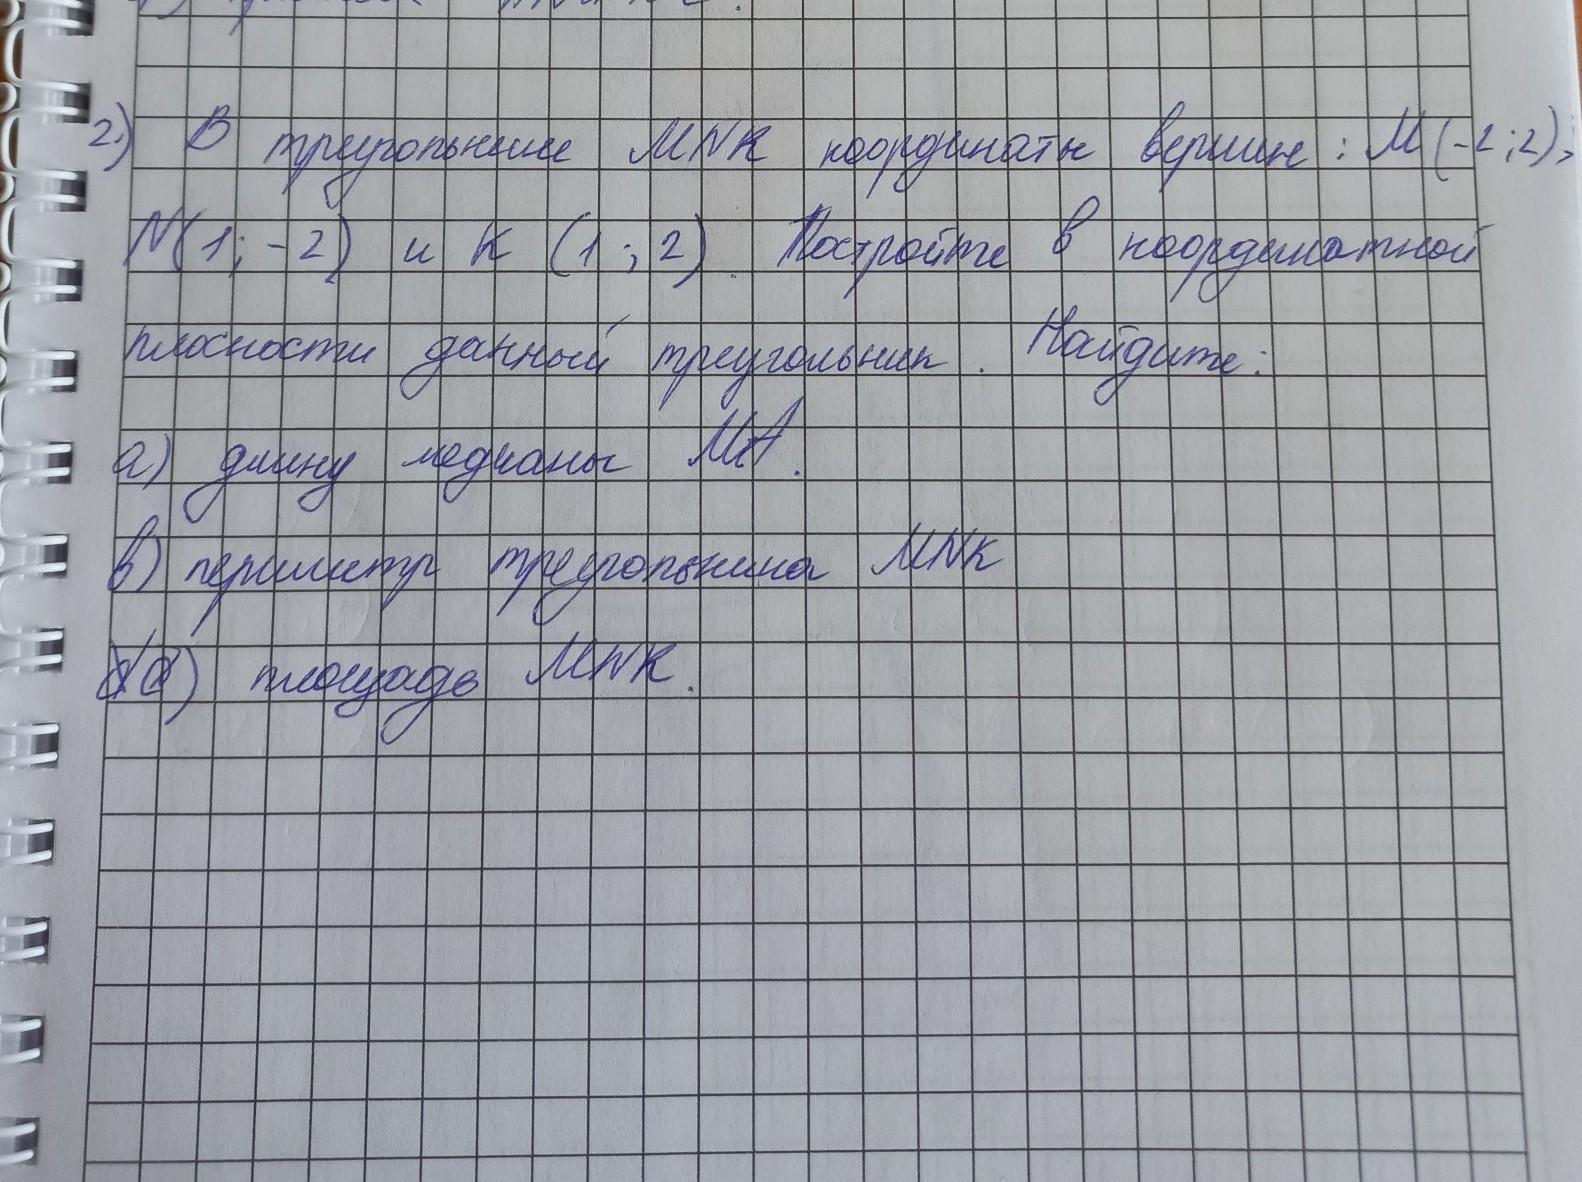 2) В треугольнике MNK координаты вершин: M(-2;2),
N(1;-2) и K (1;2). Постройте в координатной
плоскости данный треугольник. Найдите:
а) длину медианы MA.
в) периметр треугольника MNK
d) площадь MNK.